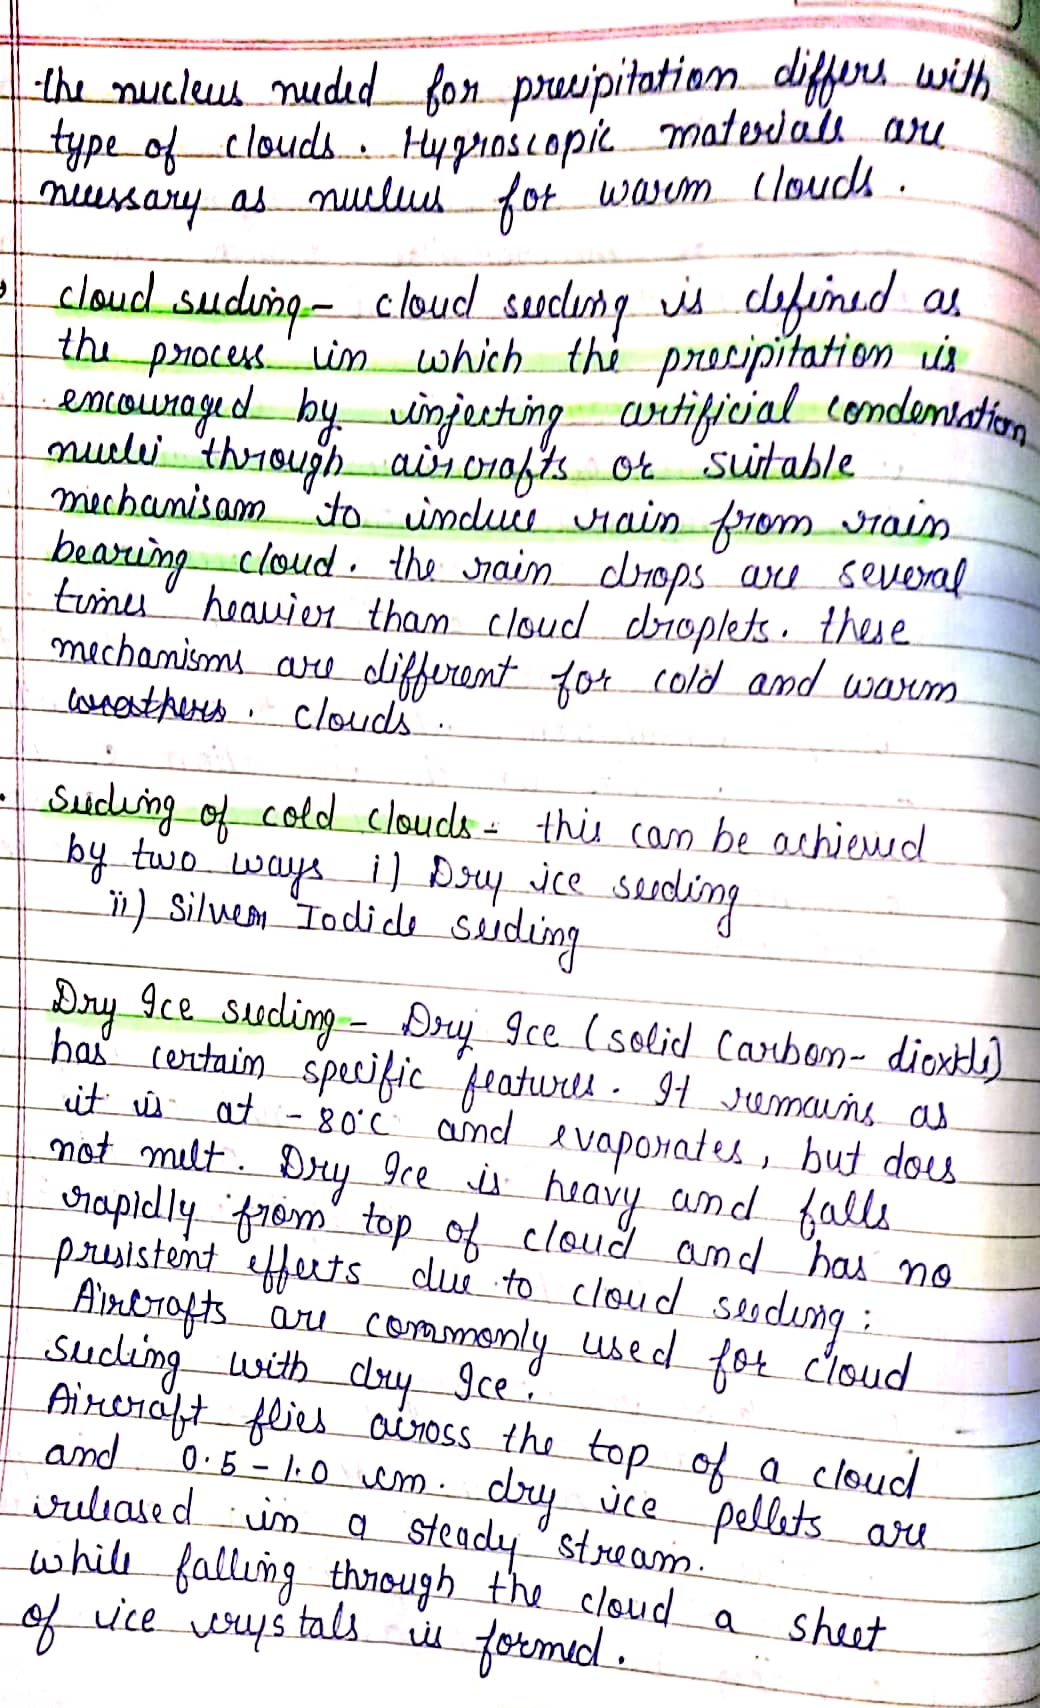 the nucleus needed for precipitation differs with
type of clouds. Hygroscopic materials are
necessary as nucleus for warm clouds.
cloud seeding - cloud seeding is defined as
the process in which the precipitation is
encouraged by injecting artificial condensation
nuclei through aircrafts or suitable
mechanisam to induce rain from rain
bearing cloud. the rain drops are several
times heavier than cloud droplets. these
mechanisms are different for cold and warm
weathers. clouds.
Seeding of cold clouds - this can be achieved
by two ways i) Dry ice seeding
ii) Silver Iodide seeding
Dry Ice seeding - Dry Ice (solid Carbon-dioxide)
has certain specific features. It remains as
it is at -80°C and evaporates, but does
not melt. Dry Ice is heavy and falls
rapidly from top of cloud and has no
presistent effects due to cloud seeding:
Aircrafts are commonly used for cloud
seeding with dry Ice.
Aircraft flies across the top of a cloud
and 0.5-1.0 cm. dry ice pellets are
released in a steady stream.
while falling through the cloud a sheet
of ice crystals is formed.